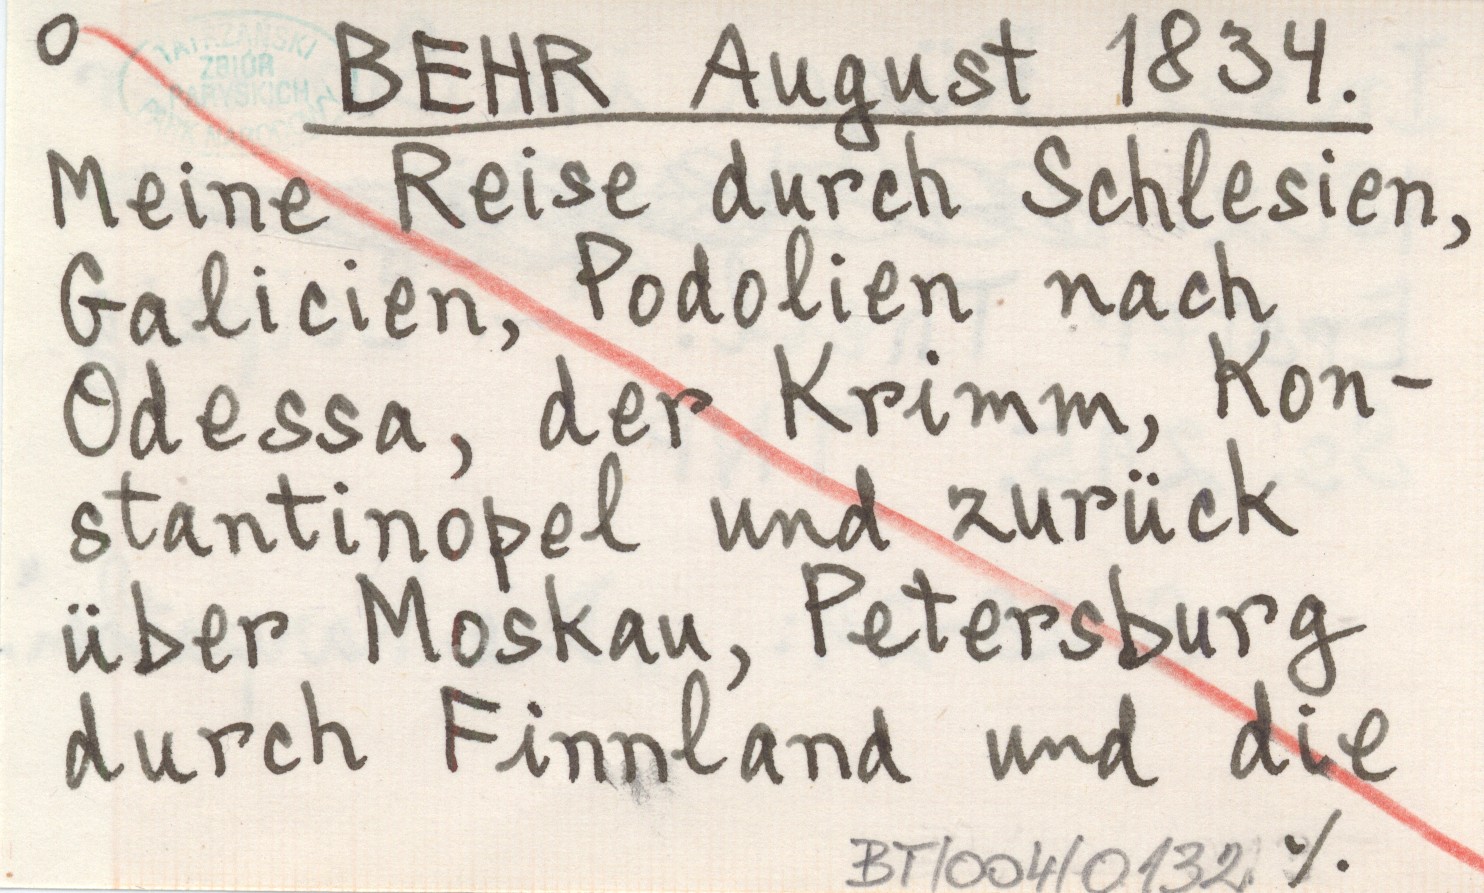 O
TATRZAŃSKI
ZBIÓR
PARYSKICH
BEHR August 1834.
Meine Reise durch Schlesien,
Galicien, Podolien nach
Odessa, der Krimm, Kon-
stantinopel und zurück
über Moskau, Petersburg
durch Finnland und die
./.
BT/004/0132